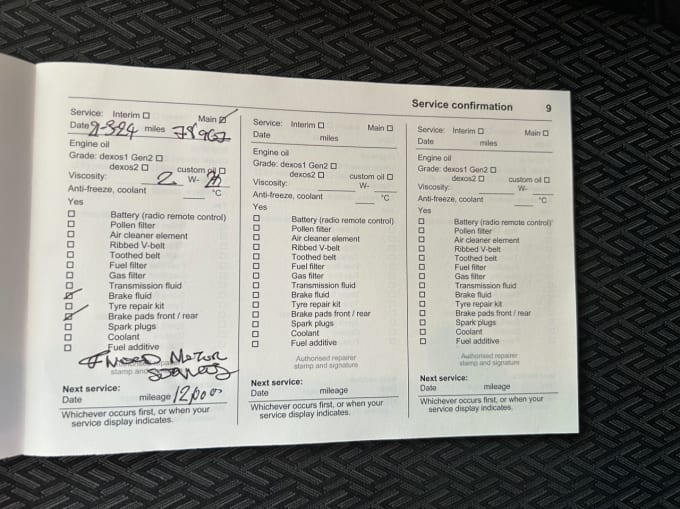 Service confirmation 9
Service: Interim ☐ Main ☑
Date 2-3-24 miles
Engine oil
Grade: dexos1 Gen2 ☐
dexos2 ☐ custom oil ☐
Viscosity: W-
Anti-freeze, coolant °C
Yes
☐ Battery (radio remote control)
☐ Pollen filter
☐ Air cleaner element
☐ Ribbed V-belt
☐ Toothed belt
☐ Fuel filter
☐ Gas filter
☐ Transmission fluid
☑ Brake fluid
☐ Tyre repair kit
☑ Brake pads front / rear
☐ Spark plugs
☐ Coolant
☐ Fuel additive
Motor
stamp and
Next service:
Date mileage 12,000
Whichever occurs first, or when your
service display indicates.
Service: Interim ☐ Main ☐
Date miles
Engine oil
Grade: dexos1 Gen2 ☐
dexos2 ☐ custom oil ☐
Viscosity: W-
Anti-freeze, coolant °C
Yes
☐ Battery (radio remote control)
☐ Pollen filter
☐ Air cleaner element
☐ Ribbed V-belt
☐ Toothed belt
☐ Fuel filter
☐ Gas filter
☐ Transmission fluid
☐ Brake fluid
☐ Tyre repair kit
☐ Brake pads front / rear
☐ Spark plugs
☐ Coolant
☐ Fuel additive
Authorised repairer
stamp and signature
Next service:
Date mileage
Whichever occurs first, or when your
service display indicates.
Service: Interim ☐ Main ☐
Date miles
Engine oil
Grade: dexos1 Gen2 ☐
dexos2 ☐ custom oil ☐
Viscosity: W-
Anti-freeze, coolant °C
Yes
☐ Battery (radio remote control)
☐ Pollen filter
☐ Air cleaner element
☐ Ribbed V-belt
☐ Toothed belt
☐ Fuel filter
☐ Gas filter
☐ Transmission fluid
☐ Brake fluid
☐ Tyre repair kit
☐ Brake pads front / rear
☐ Spark plugs
☐ Coolant
☐ Fuel additive
Authorised repairer
stamp and signature
Next service:
Date mileage
Whichever occurs first, or when your
service display indicates.